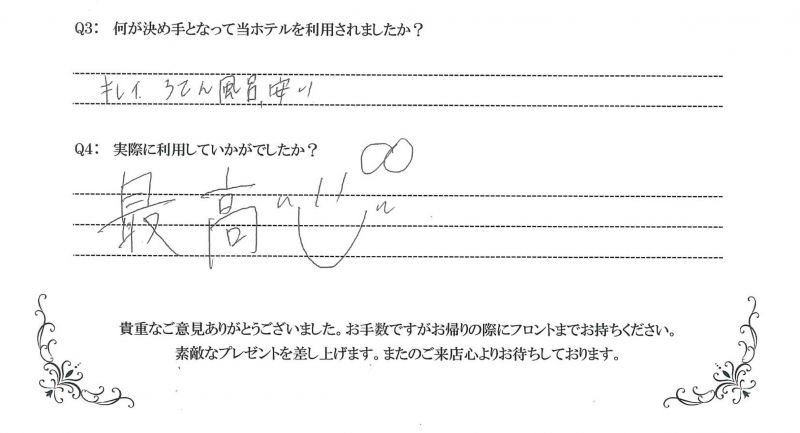 Q3： 何が決め手となって当ホテルを利用されましたか？
キレイ ろてん風呂、安い
Q4： 実際に利用していかがでしたか？
最高
貴重なご意見ありがとうございました。お手数ですがお帰りの際にフロントまでお持ちください。
素敵なプレゼントを差し上げます。またのご来店心よりお待ちしております。